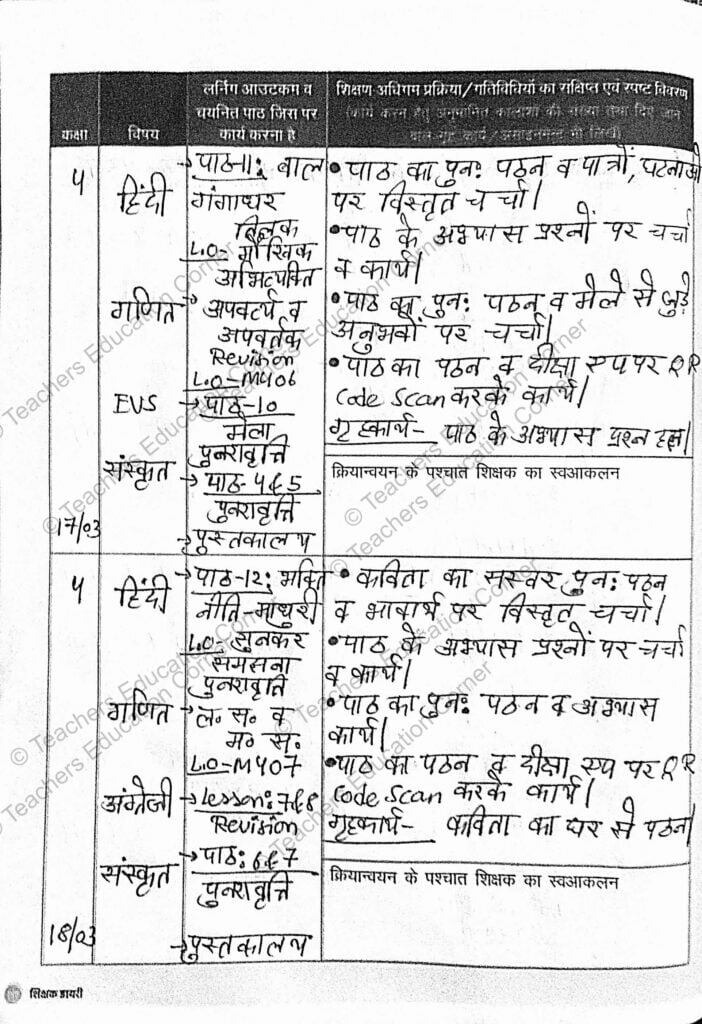 कक्षा
विषय
लर्निंग आउटकम व
चयनित पाठ जिस पर
कार्य करना है
शिक्षण अधिगम प्रक्रिया/गतिविधियों का संक्षिप्त एवं स्पष्ट विवरण
(कार्य करने हेतु अनुमानित कालांश की संख्या तथा दिए जाने
वाले गृह कार्य / असाइनमेन्ट भी लिखें)
5
हिंदी
→ पाठ-11: बाल
गंगाधर
तिलक
L.O- मौखिक
अभिव्यक्ति
गणित
→ अपवर्त्य व
अपवर्तक
Revision
L.O-M506
EVS
→ पाठ-10
मेला
पुनरावृत्ति
संस्कृत
→ पाठ- 4 & 5
पुनरावृत्ति
→ पुस्तकालय
17/03
• पाठ का पुनः पठन व पात्रों, घटनाओं
पर विस्तृत चर्चा।
• पाठ के अभ्यास प्रश्नों पर चर्चा
व कार्य।
• पाठ का पुनः पठन व मेले से जुड़े
अनुभवों पर चर्चा।
• पाठ का पठन व दीक्षा एप पर QR
Code Scan करके कार्य।
गृहकार्य- पाठ के अभ्यास प्रश्न हल।
क्रियान्वयन के पश्चात शिक्षक का स्वआकलन
5
हिंदी
→ पाठ-12: भक्ति
नीति-माधुरी
L.O- सुनकर
समझना
पुनरावृत्ति
गणित
→ ल. स. व
म. स.
L.O-M507
अंग्रेजी
→ Lesson: 7 & 8
Revision
संस्कृत
→ पाठ: 6 & 7
पुनरावृत्ति
→ पुस्तकालय
18/03
• कविता का सस्वर पुनः पठन
व भावार्थ पर विस्तृत चर्चा।
• पाठ के अभ्यास प्रश्नों पर चर्चा
व कार्य।
• पाठ का पुनः पठन व अभ्यास
कार्य।
• पाठ का पठन व दीक्षा एप पर QR
Code Scan करके कार्य।
गृहकार्य- कविता का घर से पठन।
क्रियान्वयन के पश्चात शिक्षक का स्वआकलन
शिक्षक डायरी
© Teachers Education Corner